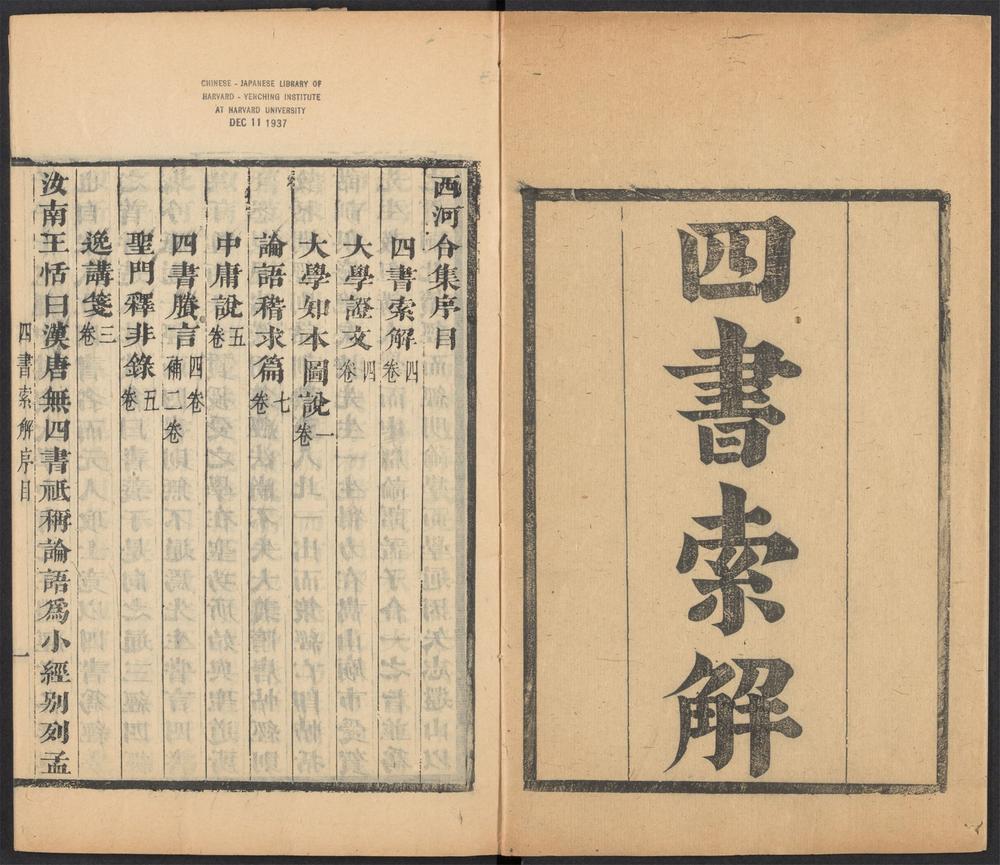 四書索解
CHINESE - JAPANESE LIBRARY OF
HARVARD - YENCHING INSTITUTE
AT HARVARD UNIVERSITY
DEC 11 1937
西河合集序目
四書索解四卷
大學證文四卷
大學知本圖說一卷
論語稽求篇七卷
中庸說五卷
四書賸言四卷補二卷
聖門釋非錄五卷
逸講箋三卷
汝南王恬曰漢唐無四書祗稱論語爲小經别列孟
四書索解序目
一